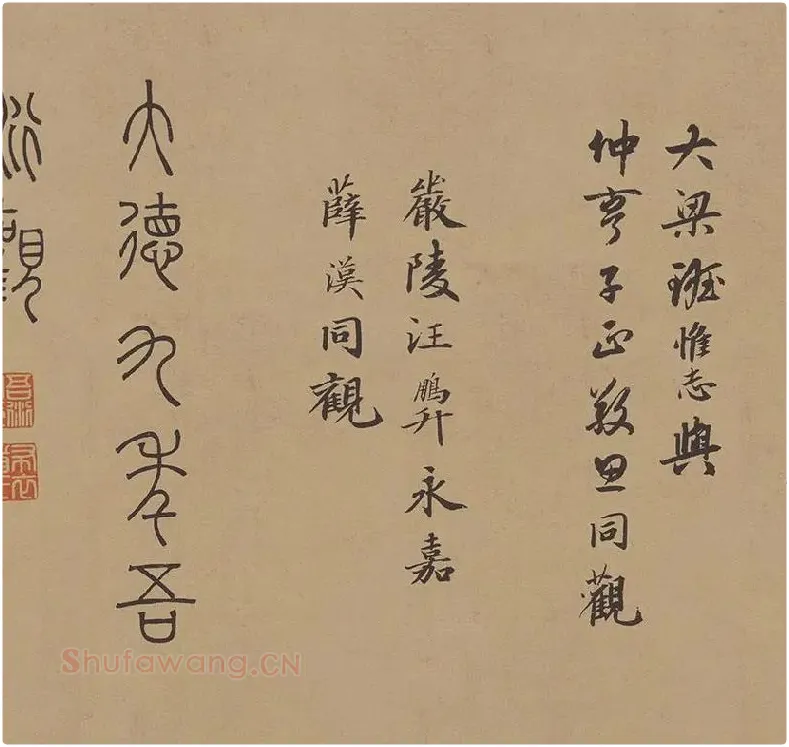 大梁班惟志與
仲亨子正思同觀
嚴陵汪鵬升永嘉
薛漢同觀
大德九年吾
Shufawang.CN